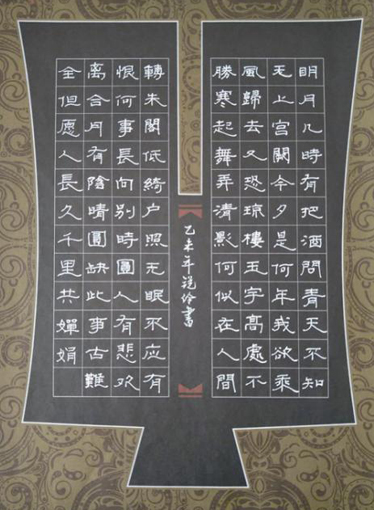 明月几時有把酒問青天不知
天上宫闕今夕是何年我欲乘
風歸去又恐琼樓玉宇高處不
勝寒起舞弄清影何似在人間
轉朱閣低綺户照无眠不應有
恨何事長向别時圓人有悲欢
离合月有陰晴圓缺此事古難
全但愿人長久千里共嬋娟
乙未年書